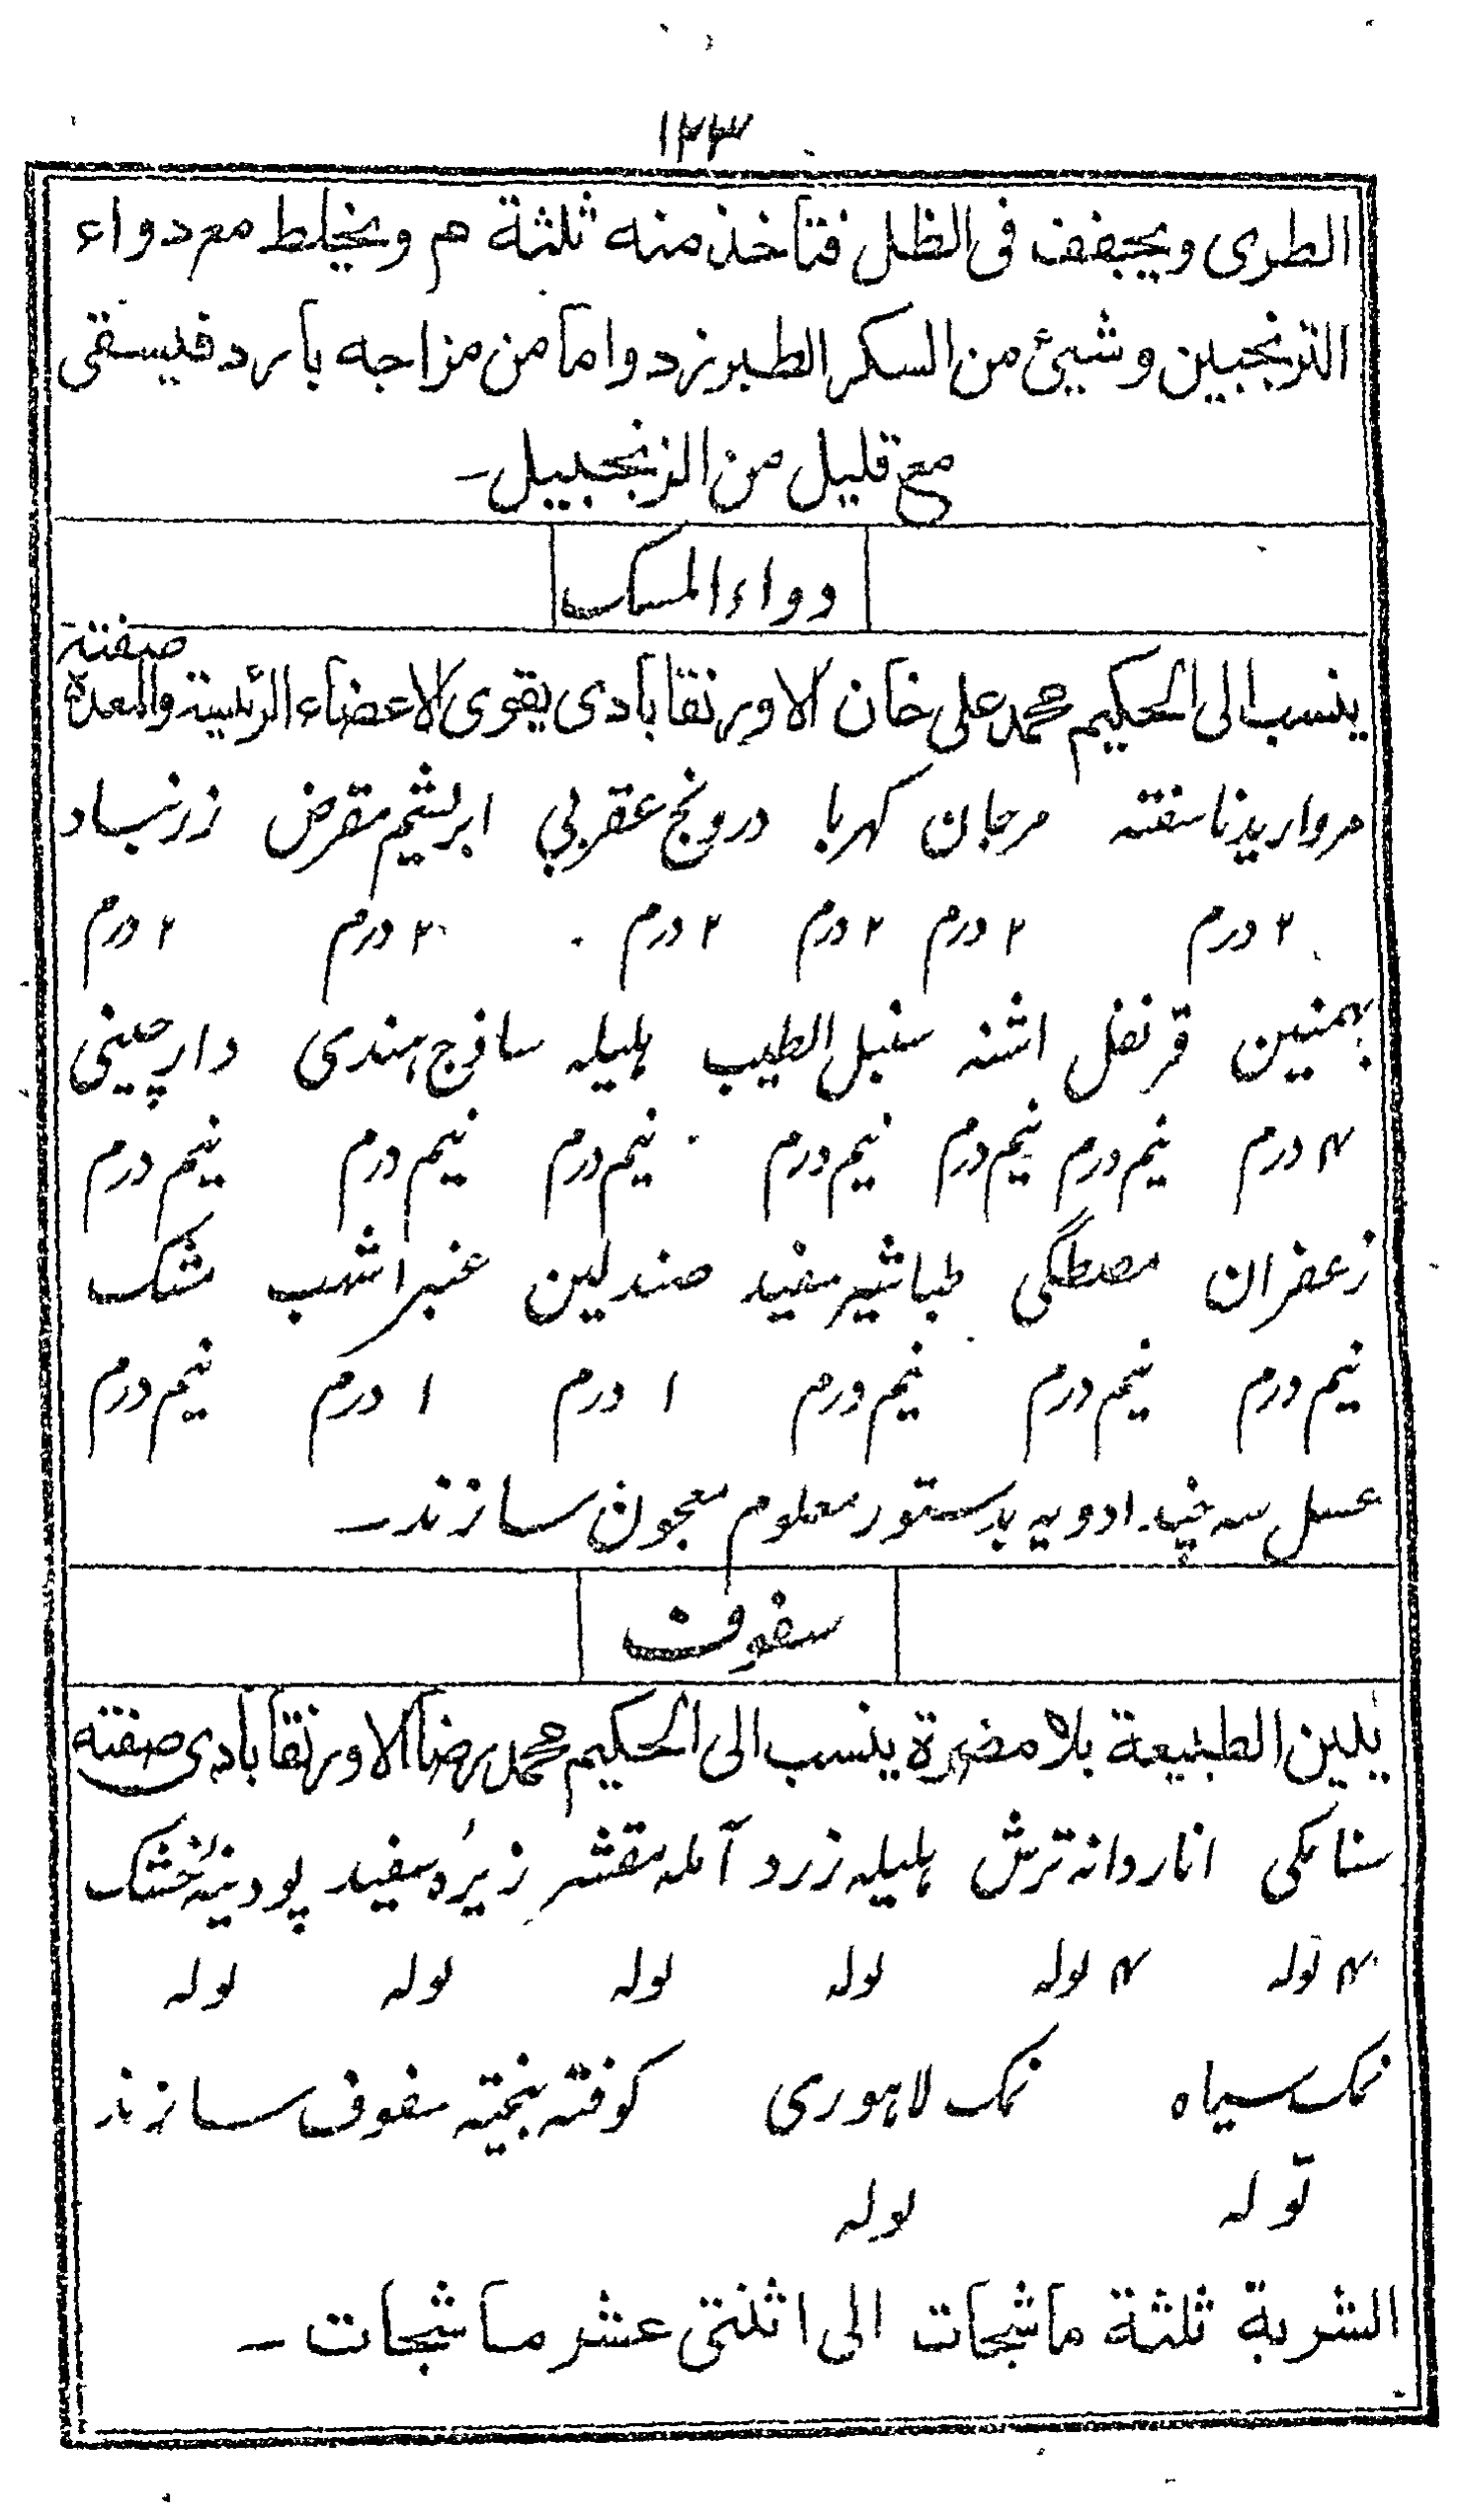 ١٢٣
الطرى ويجفف فى الظل فتاخذ منه ثلثة م ويخلط مع دواء
الترنجبين وشيئ من السكر الطبرزد واما من مزاجه بارد فيسقى
مع قليل من الزنجبيل۔
دواء المسک
ينسب الى الحكيم محمد على خان الاورنقابادى يقوى الاعضاء الرئيسة والمعدة صفته
مروارید ناسفته مرجان کہربا درونج عقربی ابریشم مقرض زرنباد
۲ درم ۲ درم ۲ درم ۲ درم ۲ درم ۲ درم
بہمنین قرنفل اشنه سنبل الطیب ہلیلہ ساذج ہندی دارچینی
۴ درم نیم درم نیم درم نیم درم نیم درم نیم درم نیم درم
زعفران مصطگی طباشیر سفید صندلین عنبر اشہب مشک
نیم درم نیم درم نیم درم ۱ درم ۱ درم نیم درم
عسل سه چند ادویه بدستور معلوم معجون سازند۔
سفوف
يلين الطبيعة بلا مضرة ينسب الى الحكيم محمد رضا الاورنقابادى صفته
سنا مکی انار دانه ترش ہلیلہ زرد آمله مقشر زیرۂ سفید پودینۂ خشک
۴ تولہ ۴ تولہ تولہ تولہ تولہ تولہ
نمک سیاه نمک لاہوری کوفته بیخته سفوف سازند
تولہ تولہ
الشربة ثلثة ماشجات الى اثنتى عشر ماشجات۔